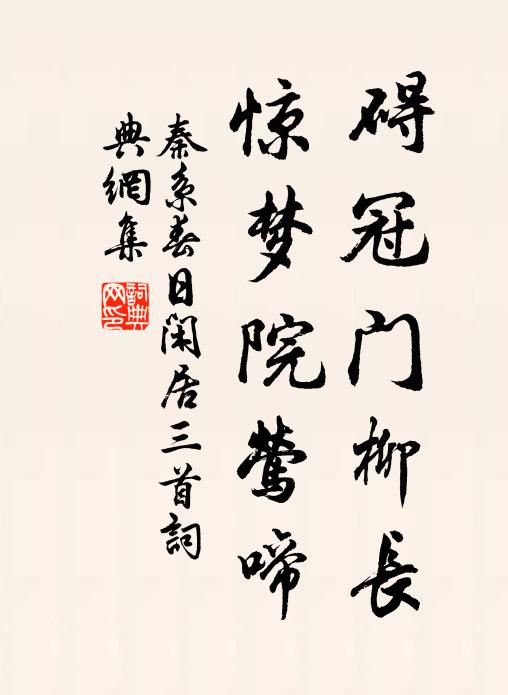 碍冠门柳長
惊梦院莺啼
秦系春日闲居三首詞
典網集
詞典网印